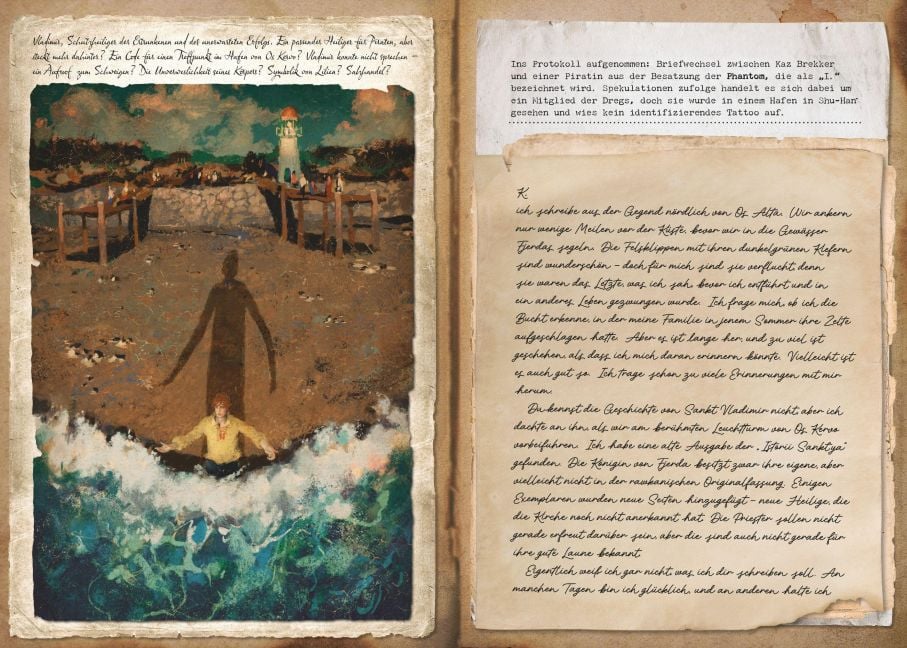 Vladimir, Schutzheiliger der Ertrunkenen und des unerwarteten Erfolgs. Ein passender Heiliger für Piraten, aber
steckt mehr dahinter? Ein Code für einen Treffpunkt im Hafen von Os Kervo? Vladimir konnte nicht sprechen –
ein Aufruf zum Schweigen? Die Unverweslichkeit seines Körpers? Symbolik von Lilien? Salzhandel?
Ins Protokoll aufgenommen: Briefwechsel zwischen Kaz Brekker
und einer Piratin aus der Besatzung der Phantom, die als „I.“
bezeichnet wird. Spekulationen zufolge handelt es sich dabei um
ein Mitglied der Dregs, doch sie wurde in einem Hafen in Shu-Han
gesehen und wies kein identifizierendes Tattoo auf.
K,
ich schreibe aus der Gegend nördlich von Os Alta. Wir ankern
nur wenige Meilen vor der Küste, bevor wir in die Gewässer
Fjerdas segeln. Die Felsklippen mit ihren dunkelgrünen Kiefern
sind wunderschön – doch für mich sind sie verflucht, denn
sie waren das Letzte, was ich sah, bevor ich entführt und in
ein anderes Leben gezwungen wurde. Ich frage mich, ob ich die
Bucht erkenne, in der meine Familie in jenem Sommer ihre Zelte
aufgeschlagen hatte. Aber es ist lange her, und zu viel ist
geschehen, als dass ich mich daran erinnern könnte. Vielleicht ist
es auch gut so. Ich trage schon zu viele Erinnerungen mit mir
herum.
Du kennst die Geschichte von Sankt Vladimir nicht, aber ich
dachte an ihn, als wir am berühmten Leuchtturm von Os Kervo
vorbeifuhren. Ich habe eine alte Ausgabe der „Istorii Sankt'ya“
gefunden. Die Königin von Fjerda besitzt zwar ihre eigene, aber
vielleicht nicht in der rawkanischen Originalfassung. Einigen
Exemplaren wurden neue Seiten hinzugefügt – neue Heilige, die
die Kirche noch nicht anerkannt hat. Die Priester sollen nicht
gerade erfreut darüber sein, aber die sind auch nicht gerade für
ihre gute Laune bekannt.
Eigentlich weiß ich gar nicht, was ich dir schreiben soll. An
manchen Tagen bin ich glücklich, und an anderen halte ich